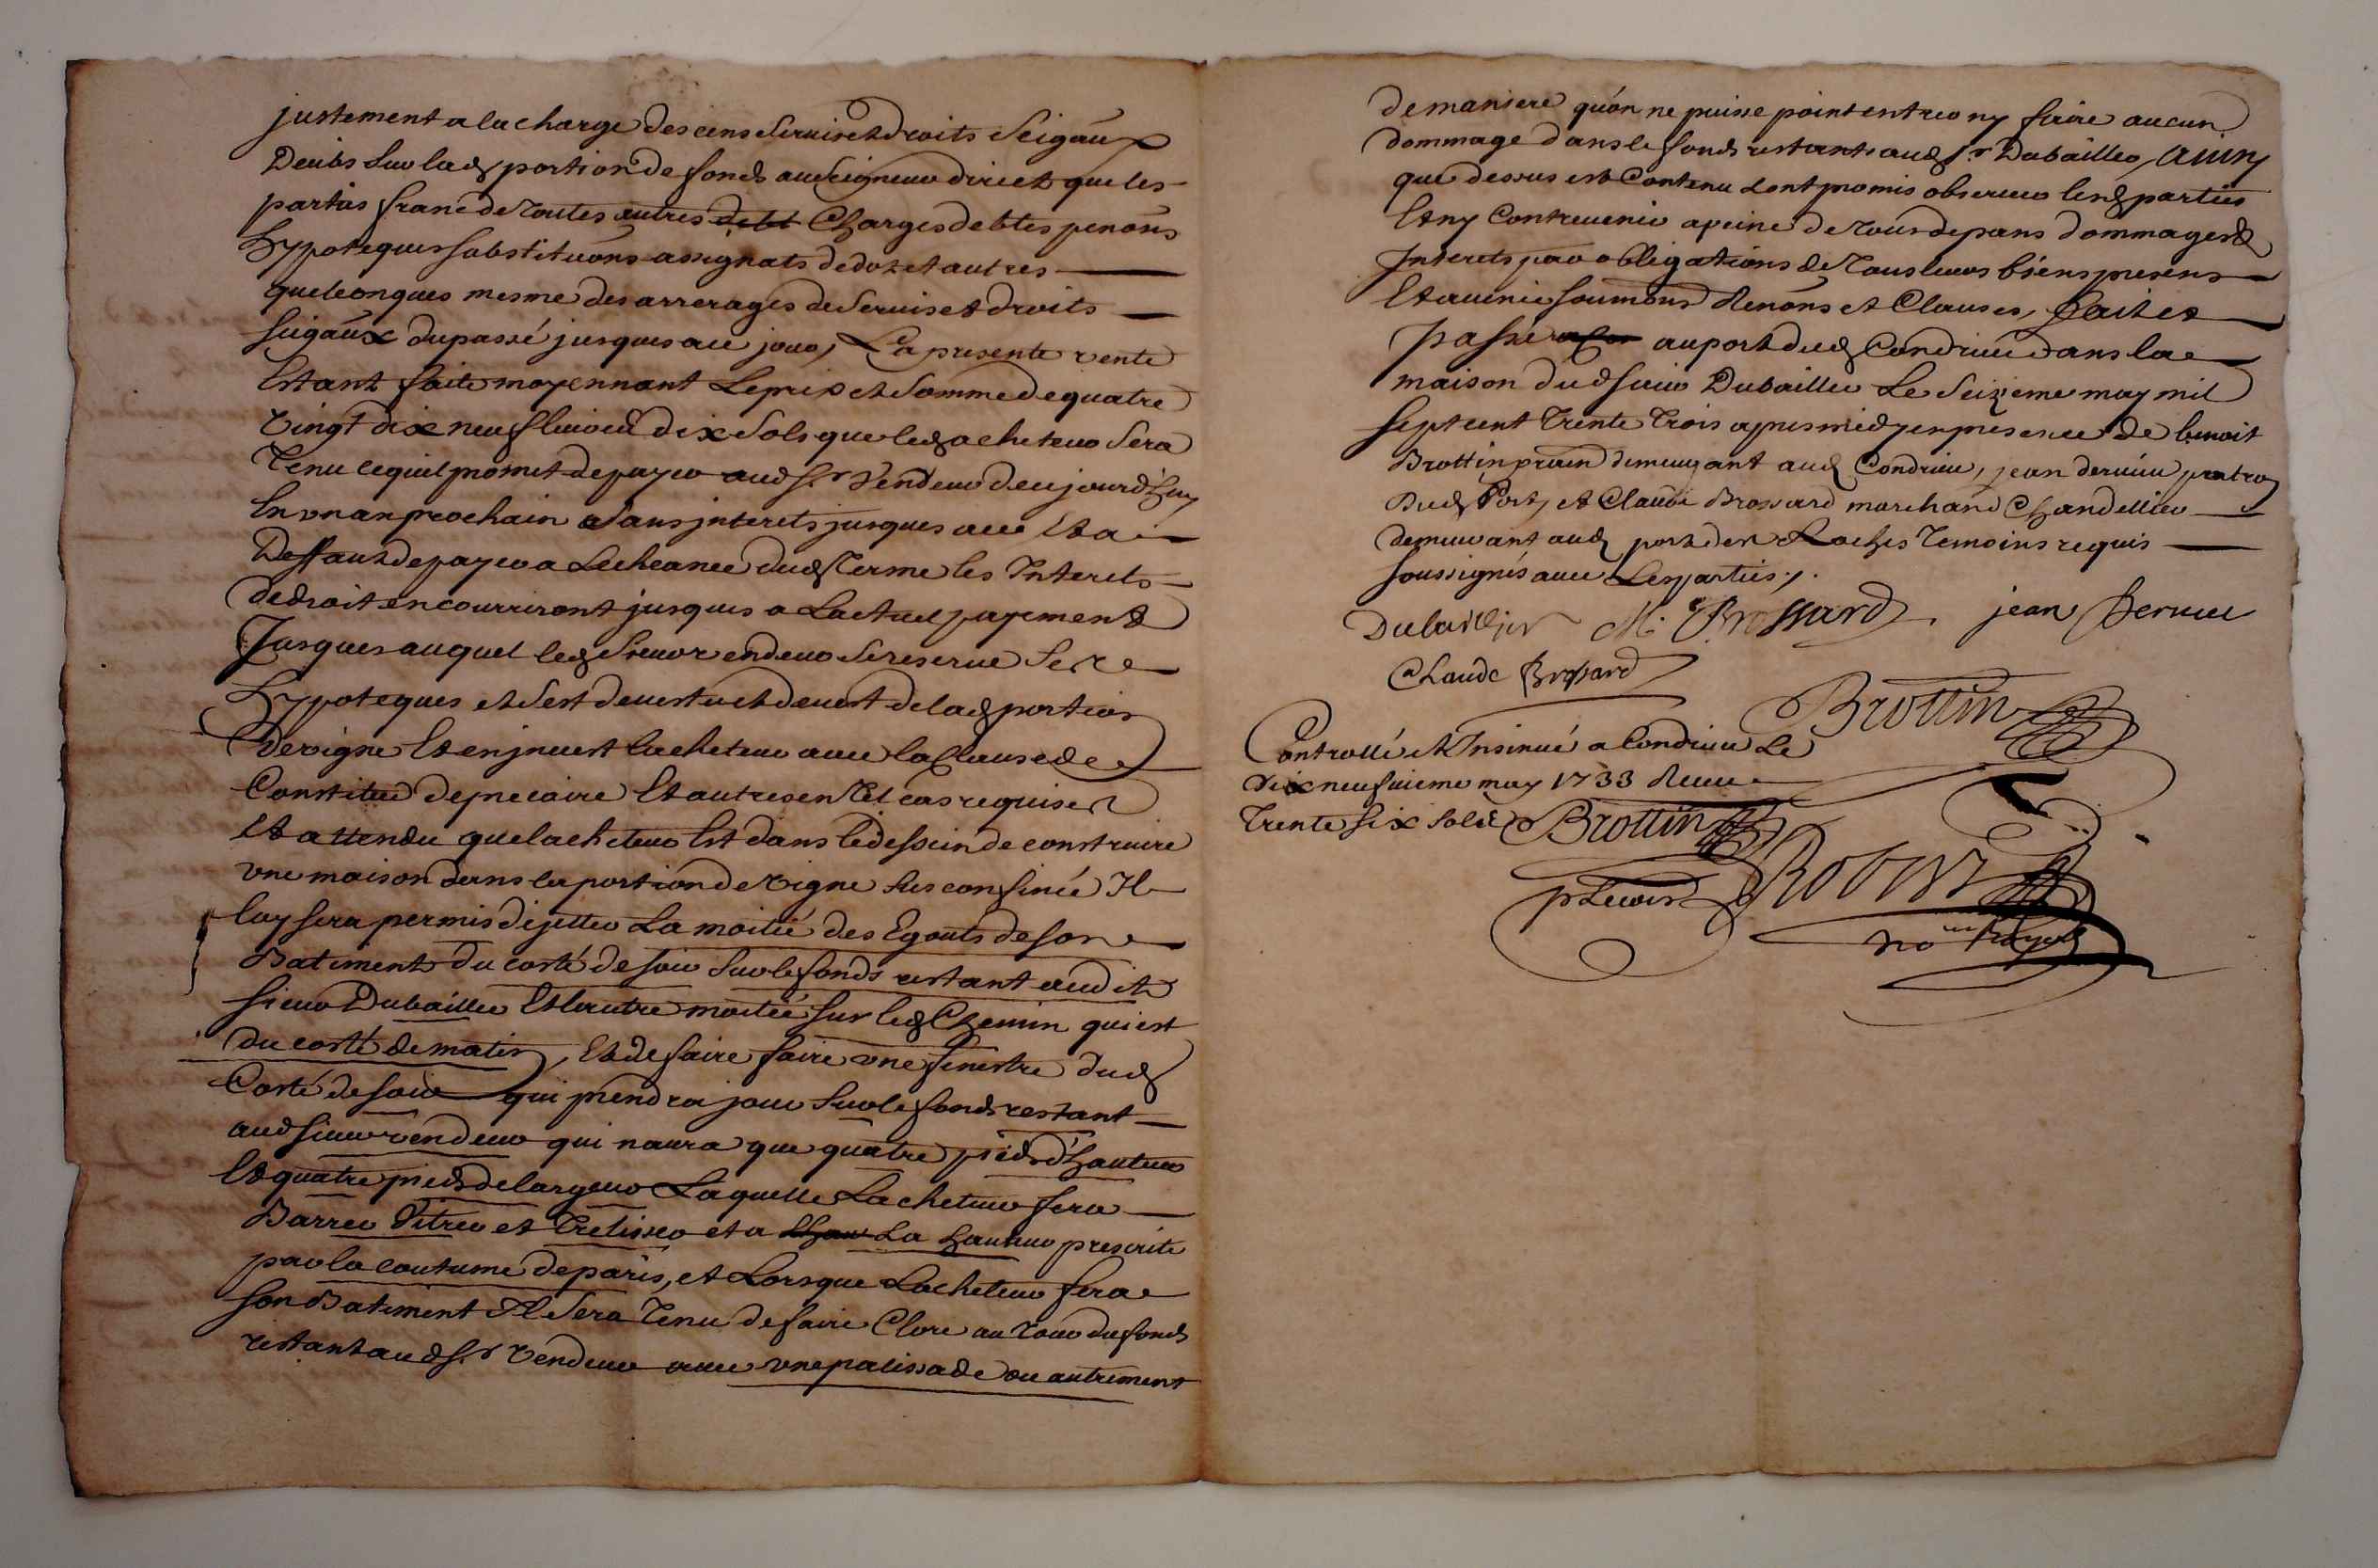 justement a la charge des cens servis et droits seigaux
deubs sur lad portion de fonds au seigneur direct que les
partis franc de toutes autres debt charges debtes penons
hypoteques substitutions assignats de dot et autres
quelconques mesme des arrerages de servis et droits
seigaux du passé jusques au jour, La presente vente
Estant faite moyennant Le prix et somme de quatre
vingt dix neuf livres dix sols que led acheteur sera
tenu le quil promet de payer aud Sr vendeur de cejourdhuy
En un an prochain sans interets jusques avec Et a
Deffaut de payer a Lecheance dud terme les Interets
de droit en courriront jusques a Lactuel payement
Jusques auquel led sieur vendeur se reserve
hypoteques et sest devestu et devest de lad portion
de vigne Et en jnvest lacheteur avec la Clause de
Constitut de precaire Et autres en tel cas requises
Et attendu que lacheteur Est dans le dessein de construire
une maison dans la portion de vigne sus confinée Il
luy sera permis de jetter La moitié des Egouts de son
Batiment du costé de soir sur le fonds restant audit
sieur Dubaillier Et lautre moitié sur led Chemin qui est
du costé de matin, Et de faire faire une fenestre dud
Costé de soir qui prendra jour sur le fonds restant
aud sieur vendeur qui naura que quatre pieds dhauteur
Et quatre pieds de largeur Laquelle Lacheteur fera
Barrer Vitrer et Trelisser et a lhau La hauteur prescrite
par la coutume de paris, et Lorsque Lacheteur fera
son Batiment Il sera tenu de faire Clore au tour du fonds
restant aud Sr vendeur avec une palissade ou autrement
de maniere quon ne puisse point entrer ny faire aucun
dommage dans le fonds restants aud Sr Dubaillier, ainsy
que dessus est Contenu dont promis observer lesd parties
Et ny Contrevenir a peine de tous depans dommages &
Interets par obligations de tous leurs biens presens
Et avenir soumons Renons et Clauses, fait et
Passé au port dud Condrieu dans la
maison dud sieur Dubaillier Le seizieme may mil
sept cent trente trois apres midy en presence de benoit
Brottin pratn demeurant aud Condrieu, jean dervieu patron
Dud Port, et Claude Brossard marchand Chandellier
demeurant aud port des Roches temoins requis
soussignés avec Les parties ./.
Dubaillier M. Brossard. jean Dervieu
Claude Brossard
Brottin
Controllé et Insinué a Condrieu Le
dix neufvieme may 1733 Receu
trente six sols Brottin
Robert
no.re Royal